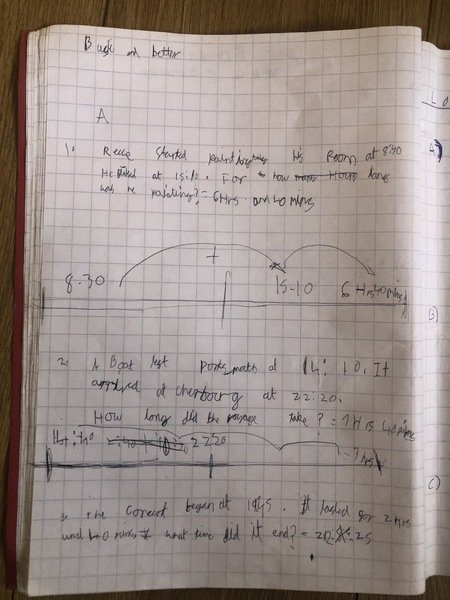 Bugle and better
A
1. Reece started painting his Room at 8:30
He finished at 15:10. For how Hours long
was he painting? = 6Hrs and 40 mins
8.30 + 15-10 6 Hrs 40 mins
2. A Boat left portsmath at 14:40. It
arrived at cherbourg at 22:20.
How long did the voyage take? = 7 Hrs 40 mins
14:40 2220 = 7 hrs
3. the concert began at 1845. It lasted for 2 Hrs
and 40 mins what time did it end? = 21.25
L O
A)
B)
C)